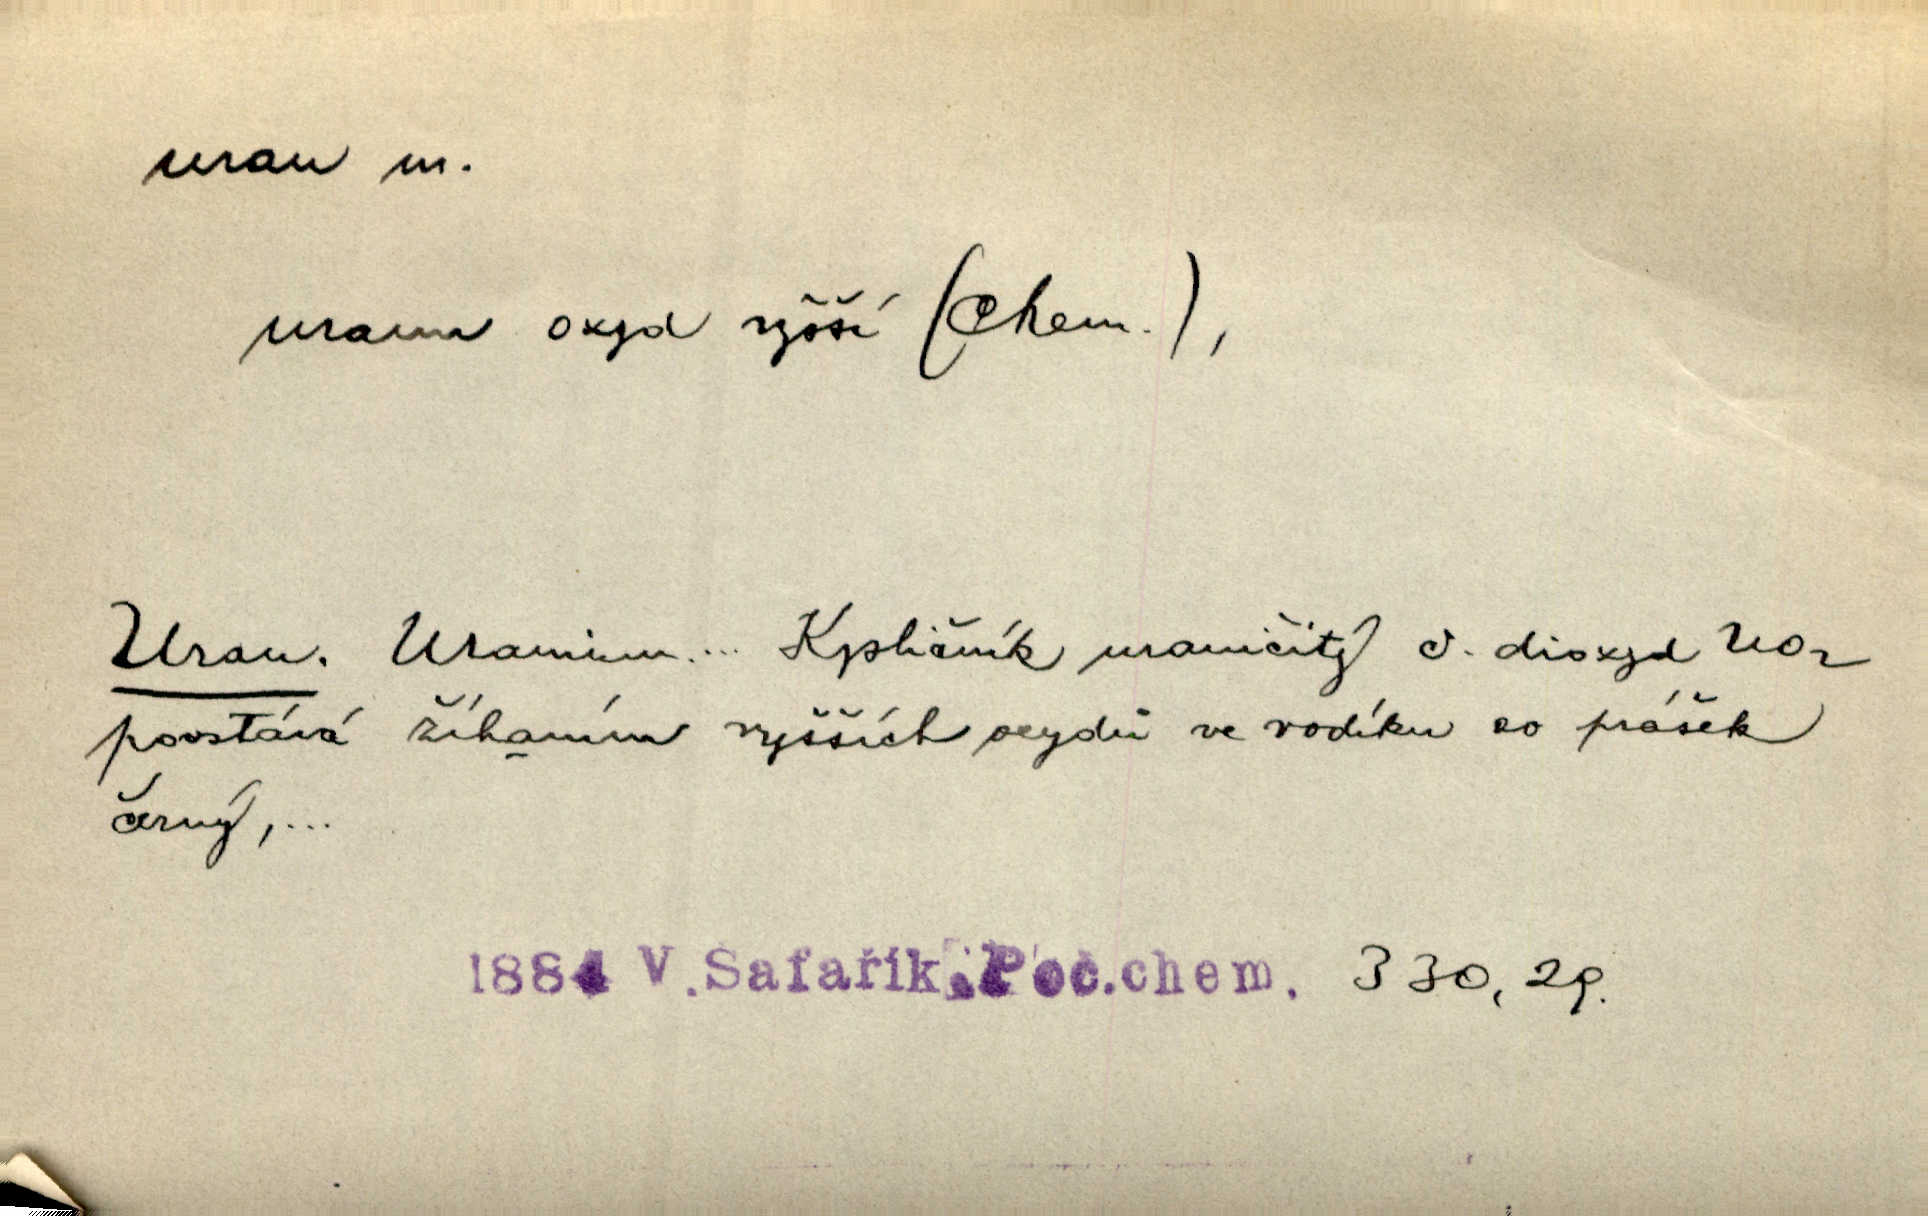 uran m.
uranu oxyd vyšší (Chem.),
Uran. Uranium.... Kysličník uraničitý č. dioxyd UO2
povstává žíhaním vyšších oxydů ve vodíku co prášek
černý,...
1884 V.Safařík.Poč.chem. 330, 29.